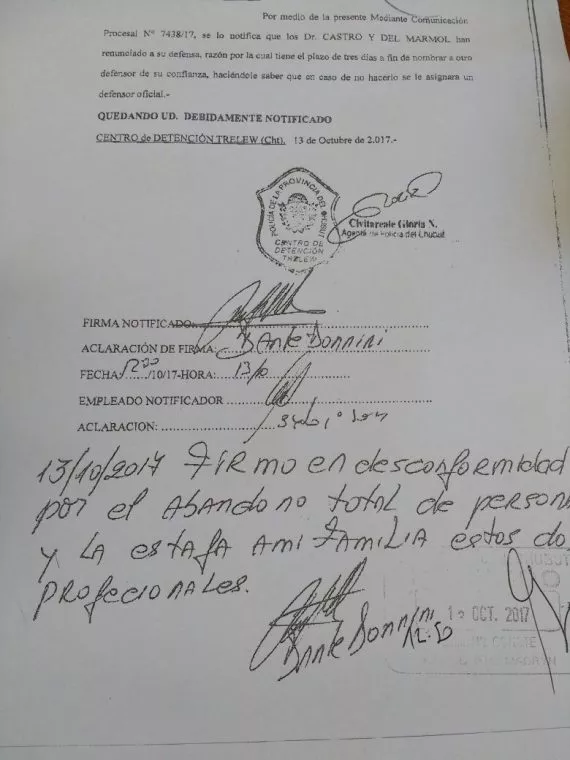 Por medio de la presente Mediante Comunicación
Procesal Nº 7438/17, se lo notifica que los Dr. CASTRO Y DEL MARMOL han
renunciado a su defensa, razón por la cual tiene el plazo de tres días a fin de nombrar a otro
defensor de su confianza, haciéndole saber que en caso de no hacerlo se le asignara un
defensor oficial.-
QUEDANDO UD. DEBIDAMENTE NOTIFICADO
CENTRO de DETENCIÓN TRELEW (Cht). 13 de Octubre de 2.017.-
POLICIA DE LA PROVINCIA DEL CHUBUT
CENTRO DE
DETENCIÓN
TRELEW
Civitareale Gloria N.
Agente de Policia del Chubut
FIRMA NOTIFICADO:
ACLARACIÓN DE FIRMA: DANte DONNINI
FECHA: /10/17-HORA:
EMPLEADO NOTIFICADOR
ACLARACION:
13/10/2017 FIRMO en desconformidad
por el ABANDONO TOTAL de person
Y LA estafa AMI FAMILIA estos do
profecionales.
DANte DONNINI
OCT. 2017
12:50